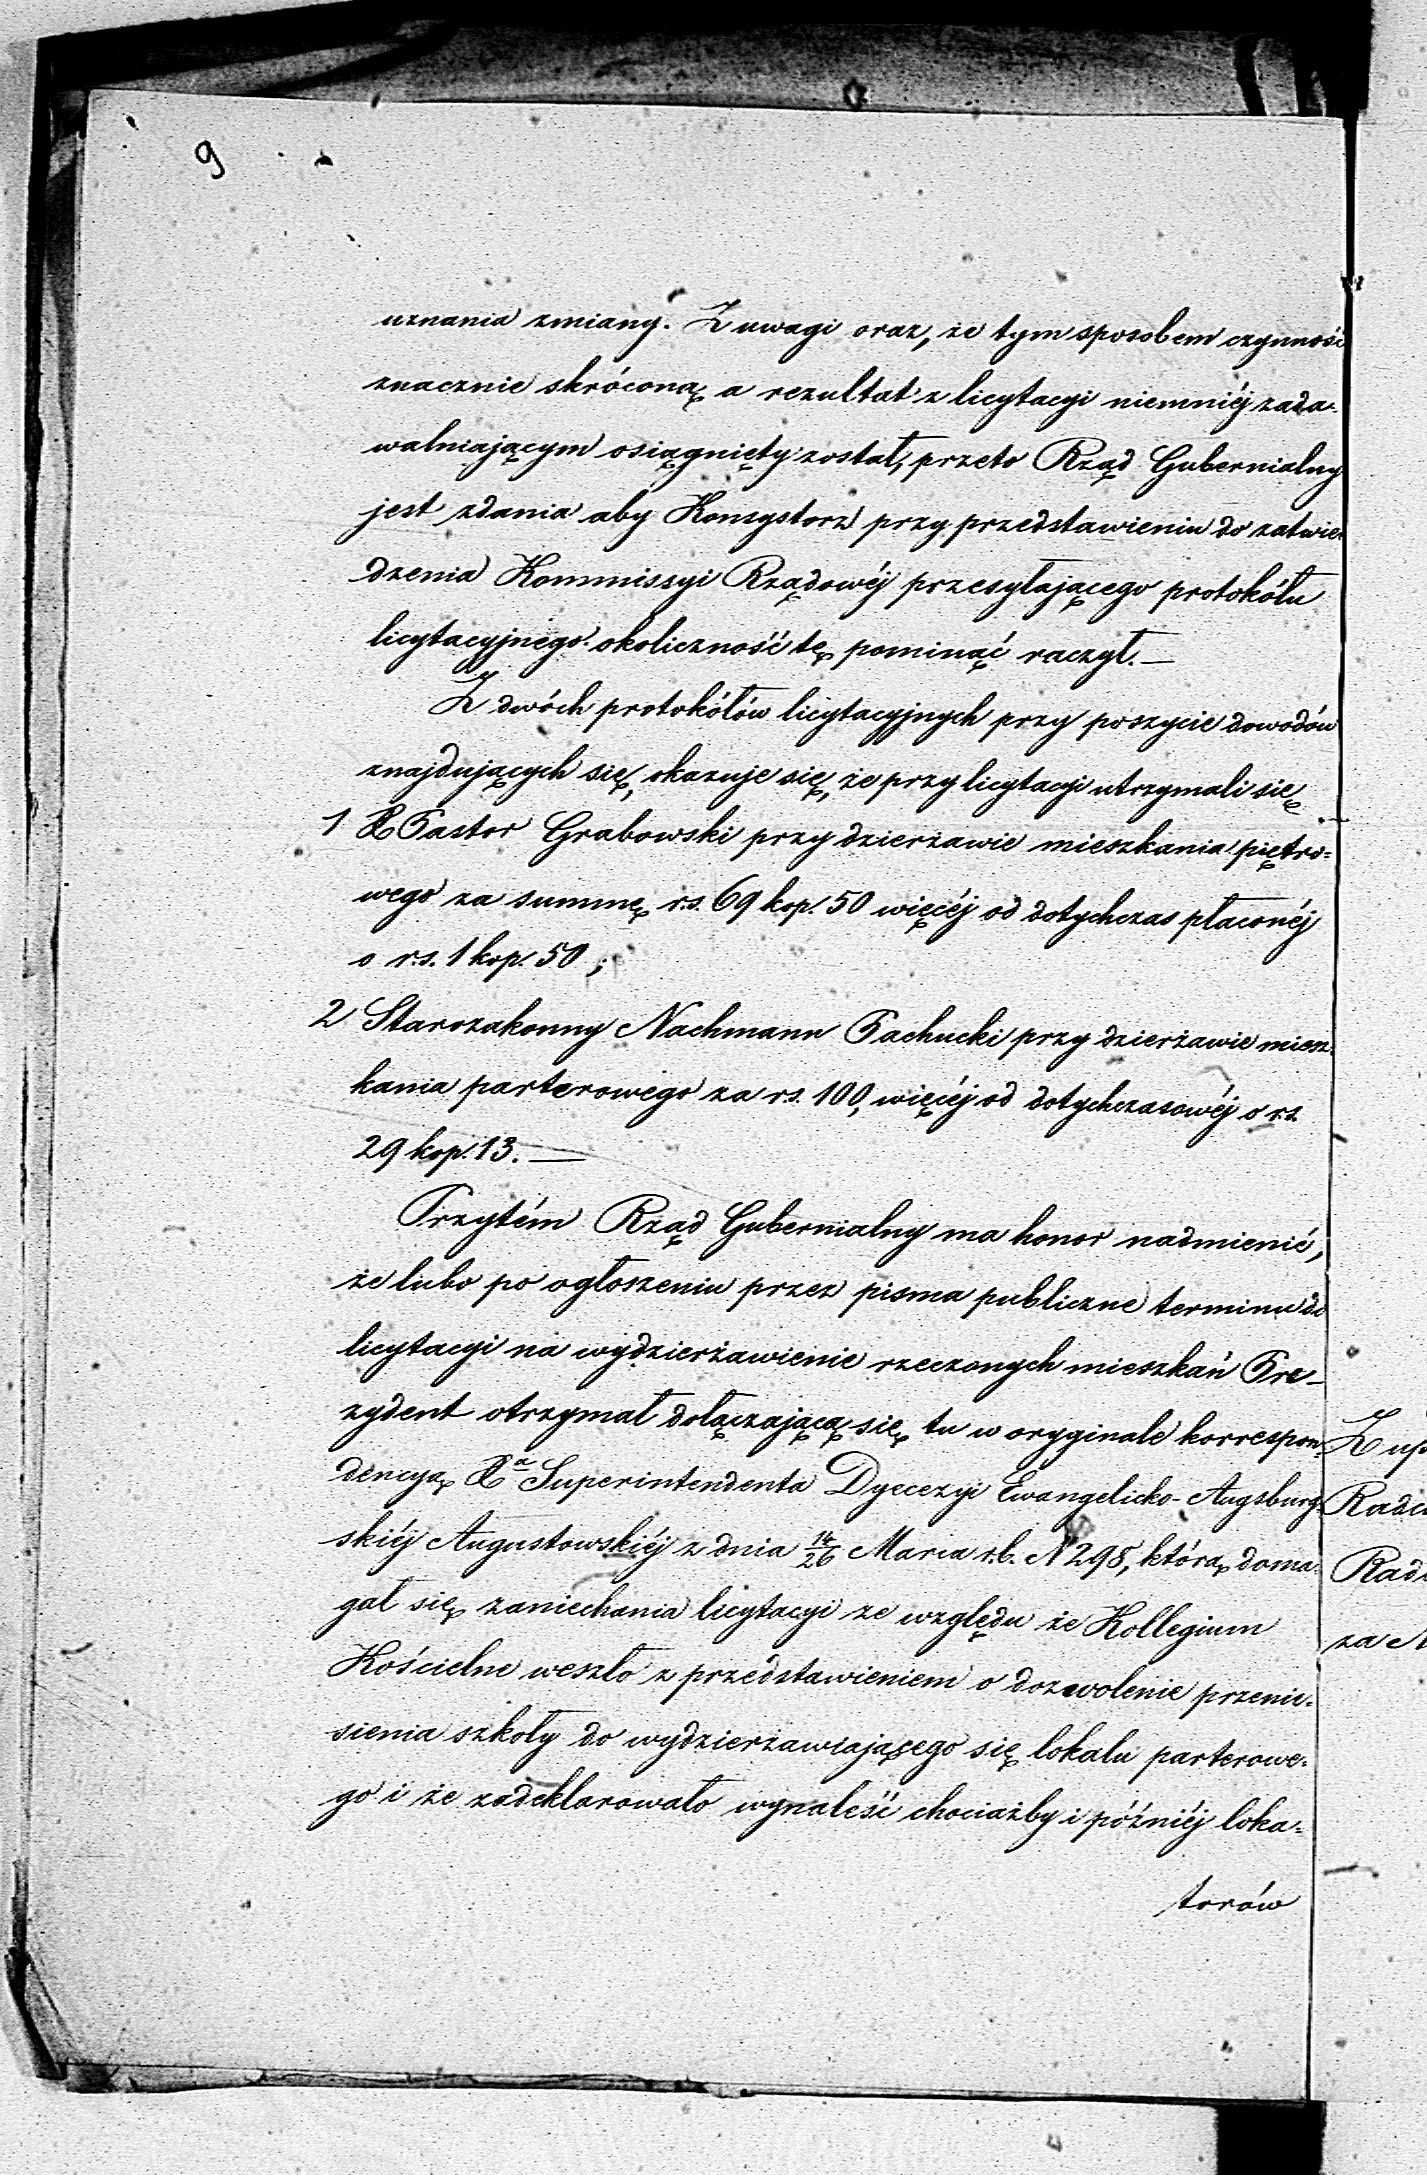 9
uznania zmiany. Z uwagi oraz, że tym sposobem czynność
znacznie skróconą a rezultat z licytacyi niemniéj zada-
walniającym osiągnięty został, przeto Rząd Gubernialny
jest zdania aby Konsystorz przy przedstawieniu do zatwier
dzenia Kommissyi Rządowéj przesyłającego protokółu
licytacyjnego okoliczność tę pominąć raczył.—
Z dwóch protokółów licytacyjnych przy poszycie dowodów
znajdujących się, okazuje się, że przy licytacyi utrzymali się
1 X Pastor Grabowski przy dzierżawie mieszkania piętro=
wego za summę rs. 69 kop. 50 więcéj od dotychczas płaconéj
o rs. 1 kop. 50;
2 Starozakonny Nachmann Pachucki przy dzierżawie miesz-
kania parterowego za rs. 100, więcéj od dotychczasowéj o rs.
29 kop. 13.—
Przytém Rząd Gubernialny ma honor nadmienić,
że lubo po ogłoszeniu przez pisma publiczne terminu do
licytacyi na wydzierżawienie rzeczonych mieszkań Pre-
zydent otrzymał dołączającą się tu w oryginale korrespon-
dencyą Xa Superintendenta Dyecezyi Ewangelicko-Augsburg-
skiéj Augustowskiéj z dnia 14/26 Marca r.b. N 298, którą doma-
gał się zaniechania licytacyi ze względu że Kollegium
Kościelne weszło z przedstawieniem o dozwolenie przenie-
sienia szkoły do wydzierżawiającego się lokalu parterowe-
go i że zadeklarowało wynaleść chociażby i późniéj loka=
torów
Z up
Radc
Rad
za N